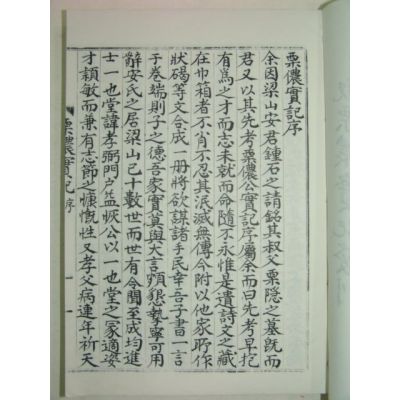 栗儂實記序
余因梁山安君鍾石之請銘其叔父栗隱之墓旣而
君又以其先考栗儂公實記序屬余而曰先考早抱
有爲之才而志未就而命隨不永惟是遺詩文之藏
在巾箱者不肖不忍其泯滅無傳今附以他家所作
狀碣等文合成一冊將欲謀諸手民幸吾子書一言
于卷端則子之德吾家實奠與大言頗懇摯寧可用
辭安氏之居梁山已十數世而世有令聞至成均進
士一也堂諱孝弼門戶益恢公以一也堂之冢適姿
才穎敏而兼有志節之慷慨性又孝父病連年祈天
栗儂實記 序 一